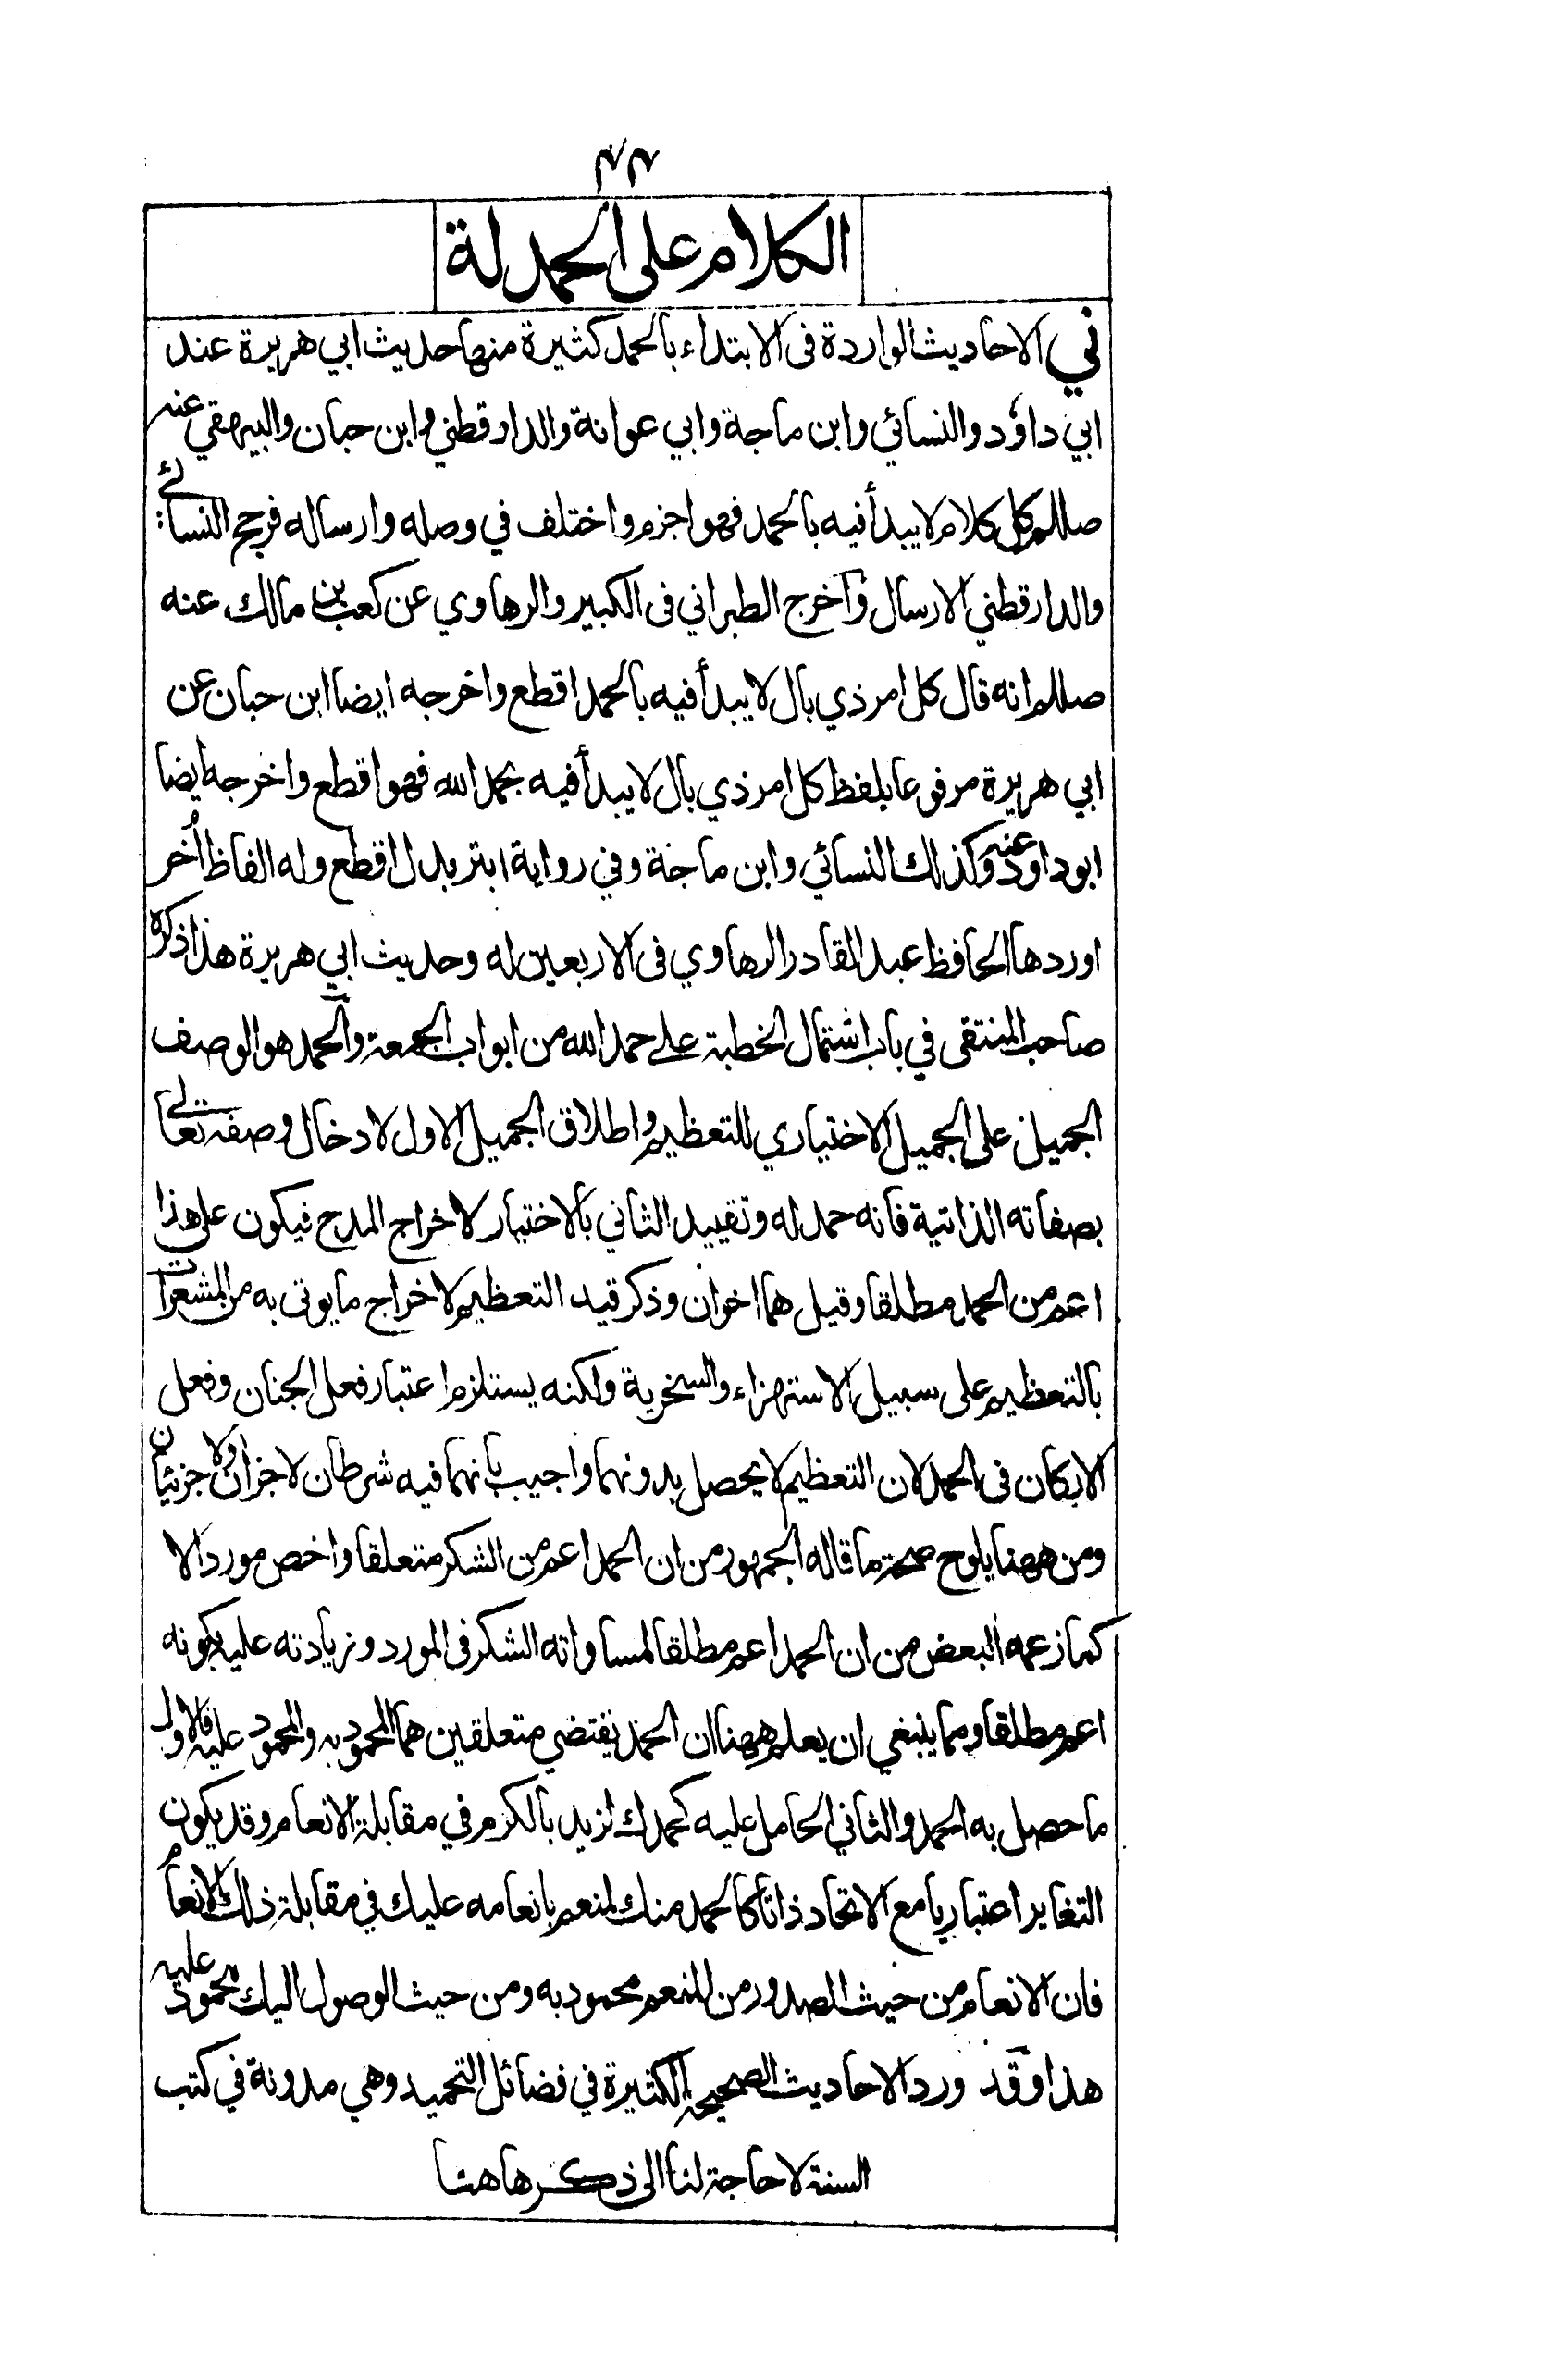 ٤٤
الكلام على الحمد لة
في الاحاديث الواردة فى الابتداء بالحمد كثيرة منها حديث ابي هريرة عند
ابي داود والنسائي وابن ماجة وابي عوانة والدارقطني وابن حبان والبيهقي عنه
صللم كل كلام لا يبدأ فيه بالحمد فهو اجزم واختلف في وصله وارساله فرجح النسائے
والدارقطني الارسال وأخرج الطبراني فى الكبير والرهاوي عن كعب بن مالك عنه
صللم انه قال كل امر ذي بال لا يبدأ فيه بالحمد اقطع واخرجه ايضا ابن حبان عن
ابي هريرة مرفوعا بلفظ كل امر ذي بال لا يبدأ فيه بحمد الله فهو اقطع واخرجه ايضا
ابو داود عنه وكذلك النسائي وابن ماجة وفي رواية ابتر بدل اقطع وله الفاظ أخر
اوردها الحافظ عبد القادر الرهاوي فى الاربعين له وحديث ابي هريرة هذا ذكره
صاحب المنتقى في باب اشتمال الخطبة علے حمد الله من ابواب الجمعة والحمد هو الوصف
الجميل على الجميل الاختياري للتعظيم واطلاق الجميل الاول لادخال وصفه تعالے
بصفاته الذاتية فانه حمد له وتقييد الثاني بالاختيار لاخراج المدح فيكون على هذا
اعم من الحمد مطلقا وقيل هما اخوان وذكر قيد التعظيم لاخراج ما يوتى به من المشعرات
بالتعظيم على سبيل الاستهزاء والسخرية ولكنه يستلزم اعتبار فعل الجنان وفعل
الاركان فى الحمد لان التعظيم لا يحصل بدونهما واجيب بانهما فيه شرطان لا جزأن ولا جزئيان
ومن ههنا يلوح صحة ما قاله الجمهور من ان الحمد اعم من الشكر متعلقا واخص موردا لا
كما زعمه البعض من ان الحمد اعم مطلقا لمساواته الشكر فى المورد وزيادته عليه بكونه
اعم مطلقا ومما ينبغي ان يعلم ههنا ان الحمد يقتضي متعلقين هما المحمود به والمحمود عليه فالاول
ما حصل به الحمد والثاني الحامل عليه كحمدك لزيد بالكرم في مقابلة الانعام وقد يكون
التغاير اعتباريا مع الاتحاد ذاتا كالحمد منك لمنعم بانعامه عليك في مقابلة ذلك الانعام
فان الانعام من حيث الصدور من المنعم محمود به ومن حيث الوصول اليك محمود عليه
هذا وقد ورد الاحاديث الصحيحة الكثيرة في فضائل التحميد وهي مدونة في كتب
السنة لا حاجة لنا الى ذكرها هنا